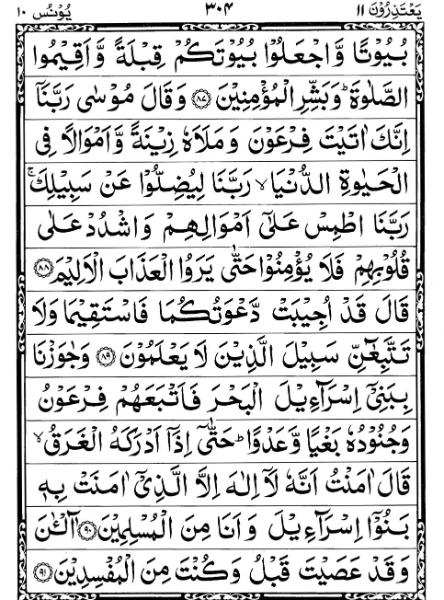 يَعْتَذِرُوْنَ ١١ ٣٠٤ يُوْنُس ١٠
بُيُوْتًا وَّاجْعَلُوْا بُيُوْتَكُمْ قِبْلَةً وَّاَقِيْمُوا
الصَّلٰوةَ ؕ وَبَشِّرِ الْمُؤْمِنِيْنَ ﴿۸۷﴾ وَقَالَ مُوْسٰى رَبَّنَاۤ
اِنَّكَ اٰتَيْتَ فِرْعَوْنَ وَمَلَاَهٗ زِيْنَةً وَّاَمْوَالًا فِى
الْحَيٰوةِ الدُّنْيَا ۙ رَبَّنَا لِيُضِلُّوْا عَنْ سَبِيْلِكَ ۚ
رَبَّنَا اطْمِسْ عَلٰٓى اَمْوَالِهِمْ وَاشْدُدْ عَلٰى
قُلُوْبِهِمْ فَلَا يُؤْمِنُوْا حَتّٰى يَرَوُا الْعَذَابَ الْاَلِيْمَ ﴿۸۸﴾
قَالَ قَدْ اُجِيْبَتْ دَّعْوَتُكُمَا فَاسْتَقِيْمَا وَلَا
تَتَّبِعٰٓنِّ سَبِيْلَ الَّذِيْنَ لَا يَعْلَمُوْنَ ﴿۸۹﴾ وَجٰوَزْنَا
بِبَنِىْۤ اِسْرَآءِيْلَ الْبَحْرَ فَاَتْبَعَهُمْ فِرْعَوْنُ
وَجُنُوْدُهٗ بَغْيًا وَّعَدْوًا ؕ حَتّٰۤى اِذَاۤ اَدْرَكَهُ الْغَرَقُ ۙ
قَالَ اٰمَنْتُ اَنَّهٗ لَاۤ اِلٰهَ اِلَّا الَّذِىْۤ اٰمَنَتْ بِهٖ
بَنُوْۤا اِسْرَآءِيْلَ وَاَنَا مِنَ الْمُسْلِمِيْنَ ﴿۹۰﴾ آٰلْـٰٔنَ
وَقَدْ عَصَيْتَ قَبْلُ وَكُنْتَ مِنَ الْمُفْسِدِيْنَ ﴿۹۱﴾